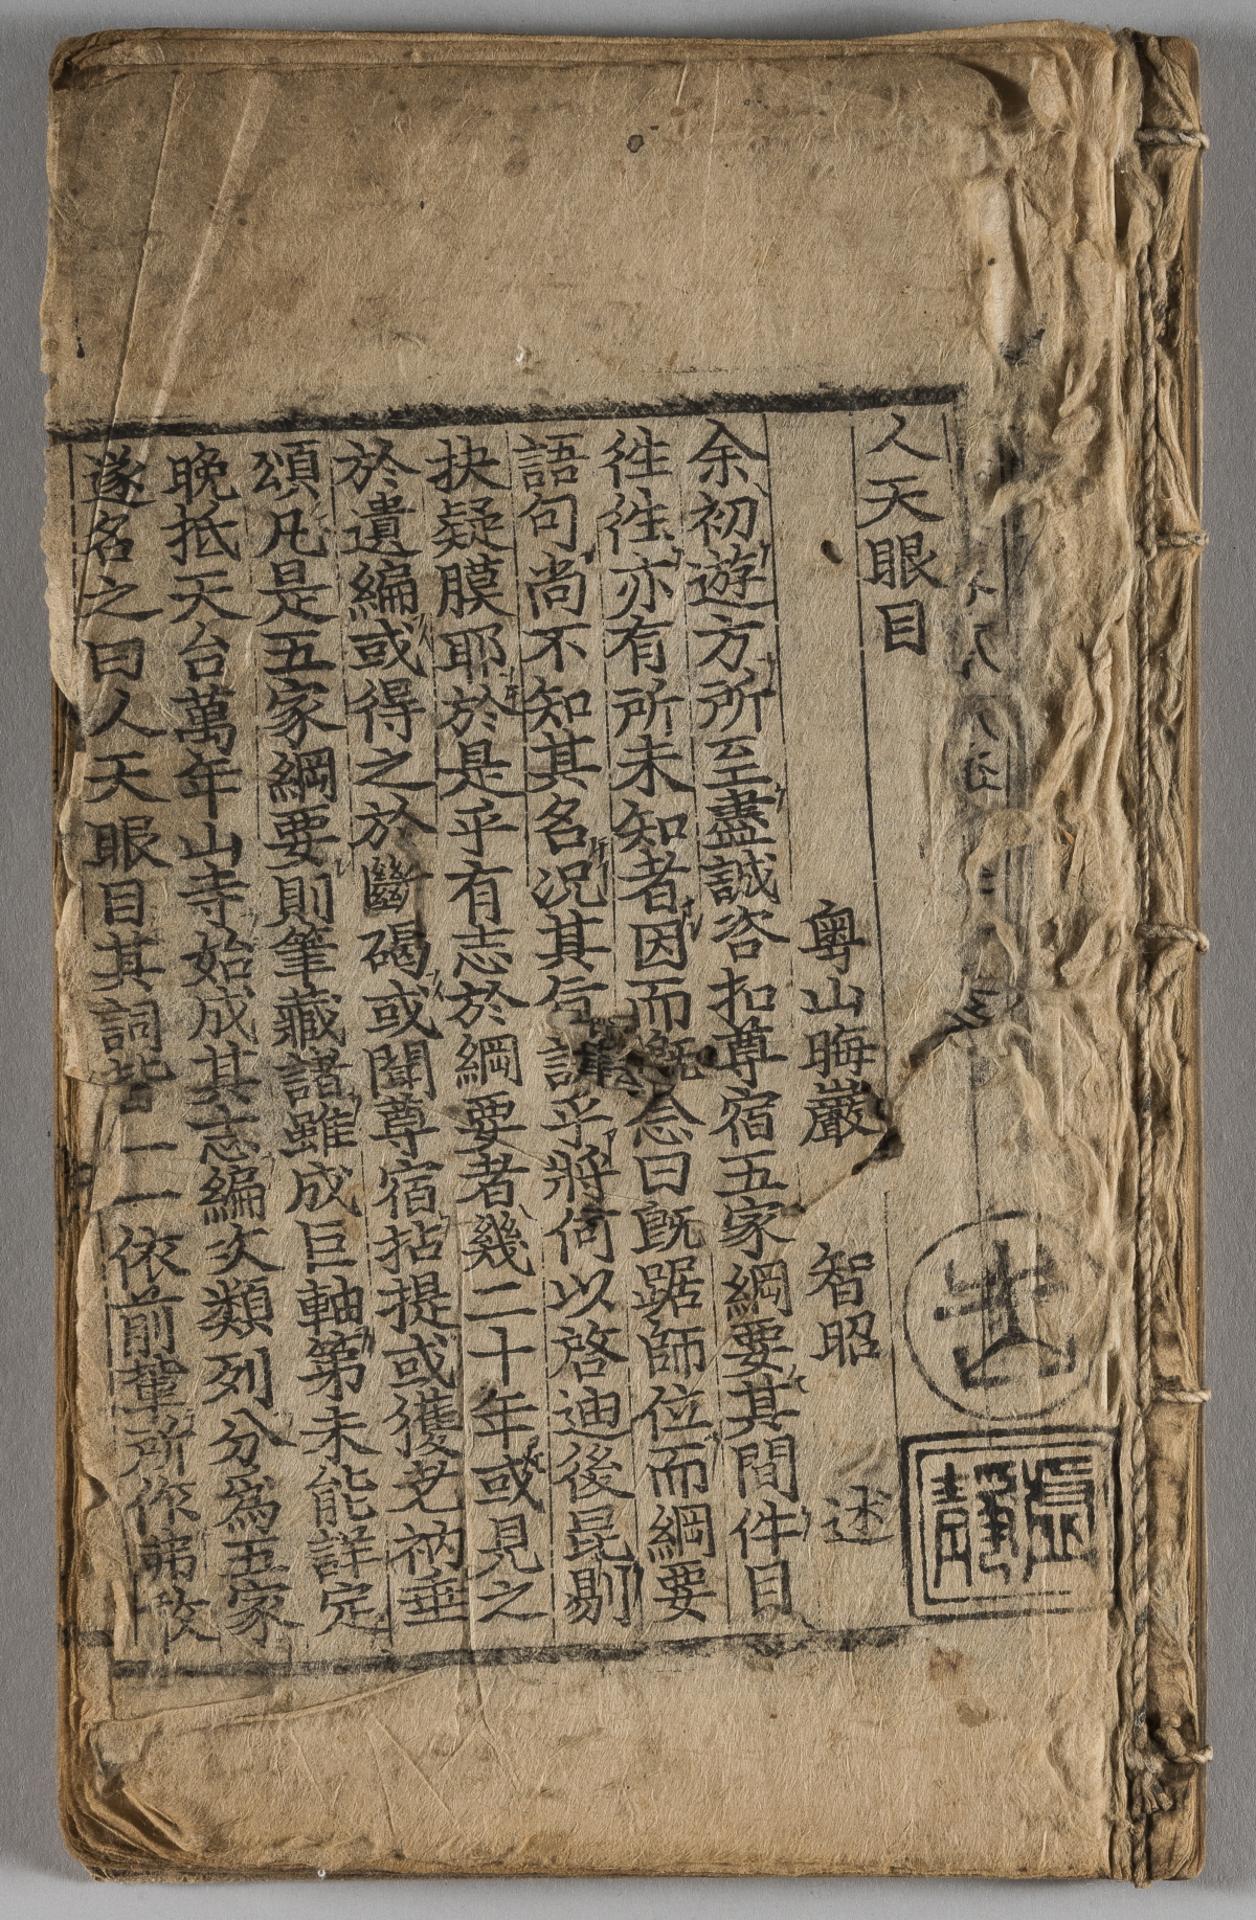 人天眼目
粤山晦巖 智昭 述
余初遊方所至盡誠咨扣尊宿五家綱要其間件目
徃徃亦有所未知者因而慨念曰旣踞師位而綱要
語句尚不知其名況其旨訣乎將何以啓迪後昆剔
抉疑膜耶於是乎有志於綱要者幾二十年或見之
於遺編或得之於斷碣或聞尊宿拈提或獲老衲垂
頌凡是五家綱要則筆藏諸雖成巨軸第未能詳定
晚抵天台萬年山寺始成其志編次類列分爲五家
遂名之曰人天眼目其詞皆一一依前輩所作弗敢